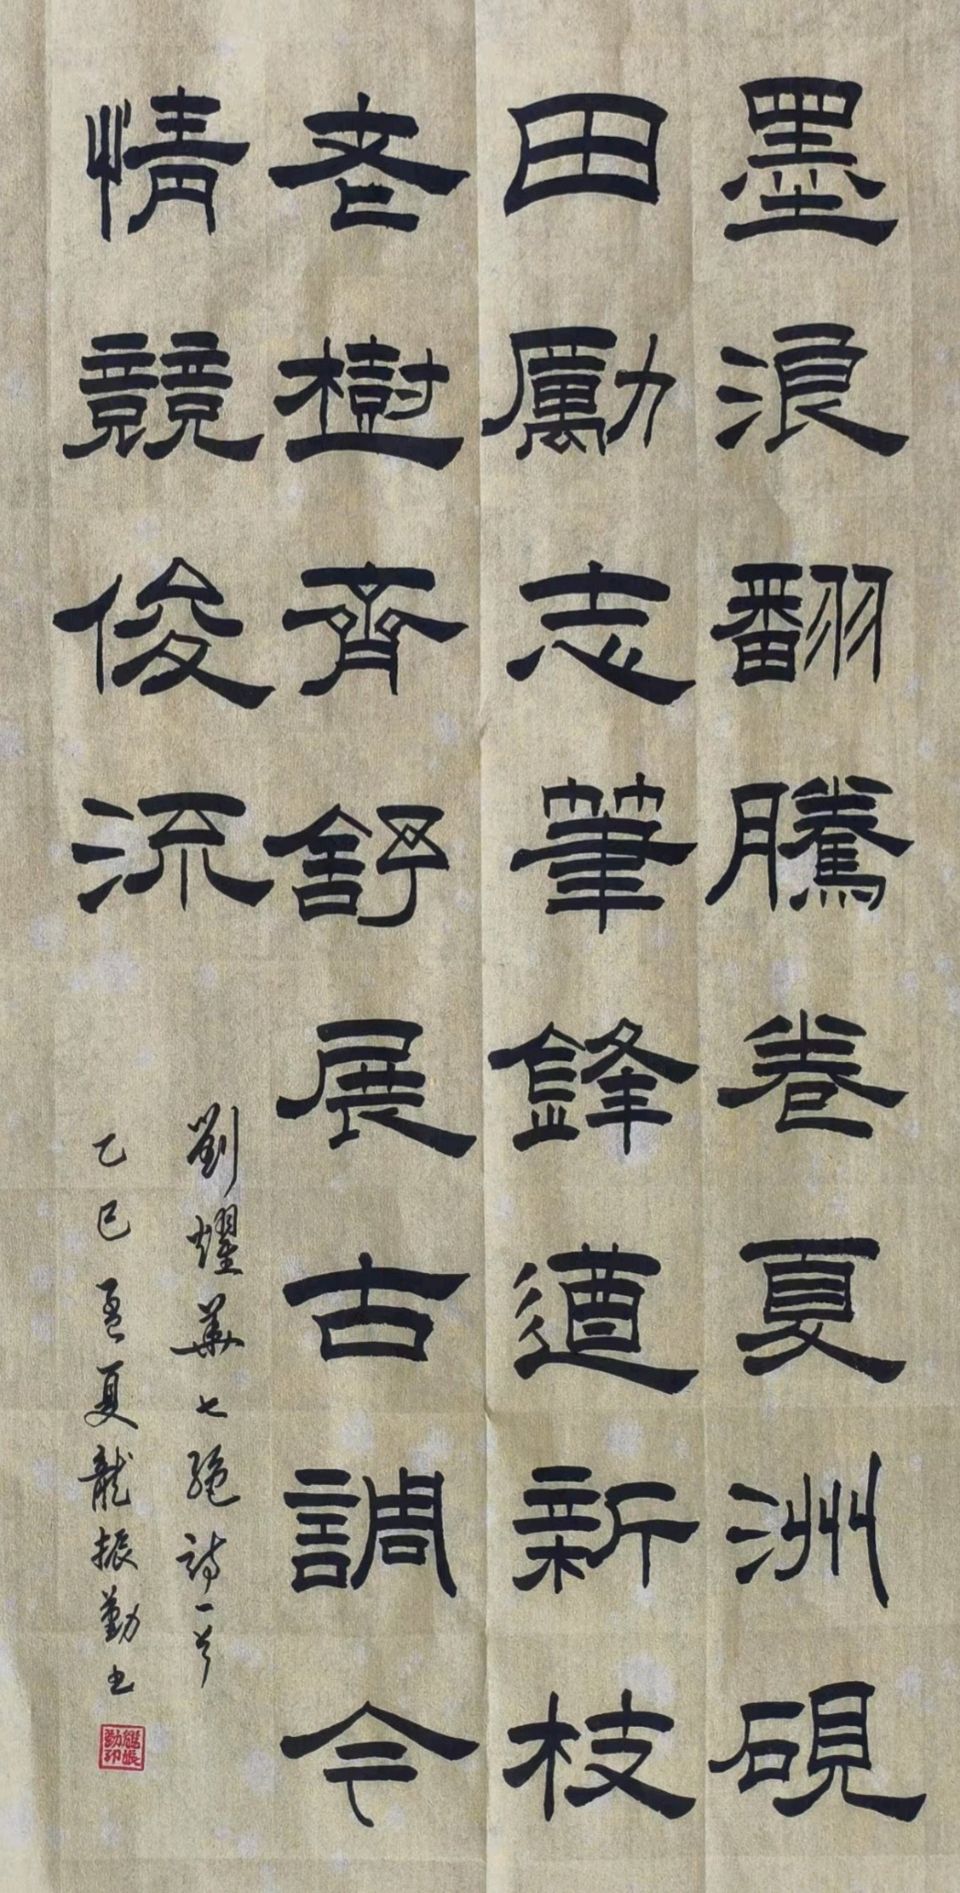 墨浪翻騰卷夏洲硯
田勵志筆鋒遒新枝
老樹齊舒展古調今
情競俊流
劉燿華七絕詩一首
乙巳孟夏龍振勤书
龍振勤印